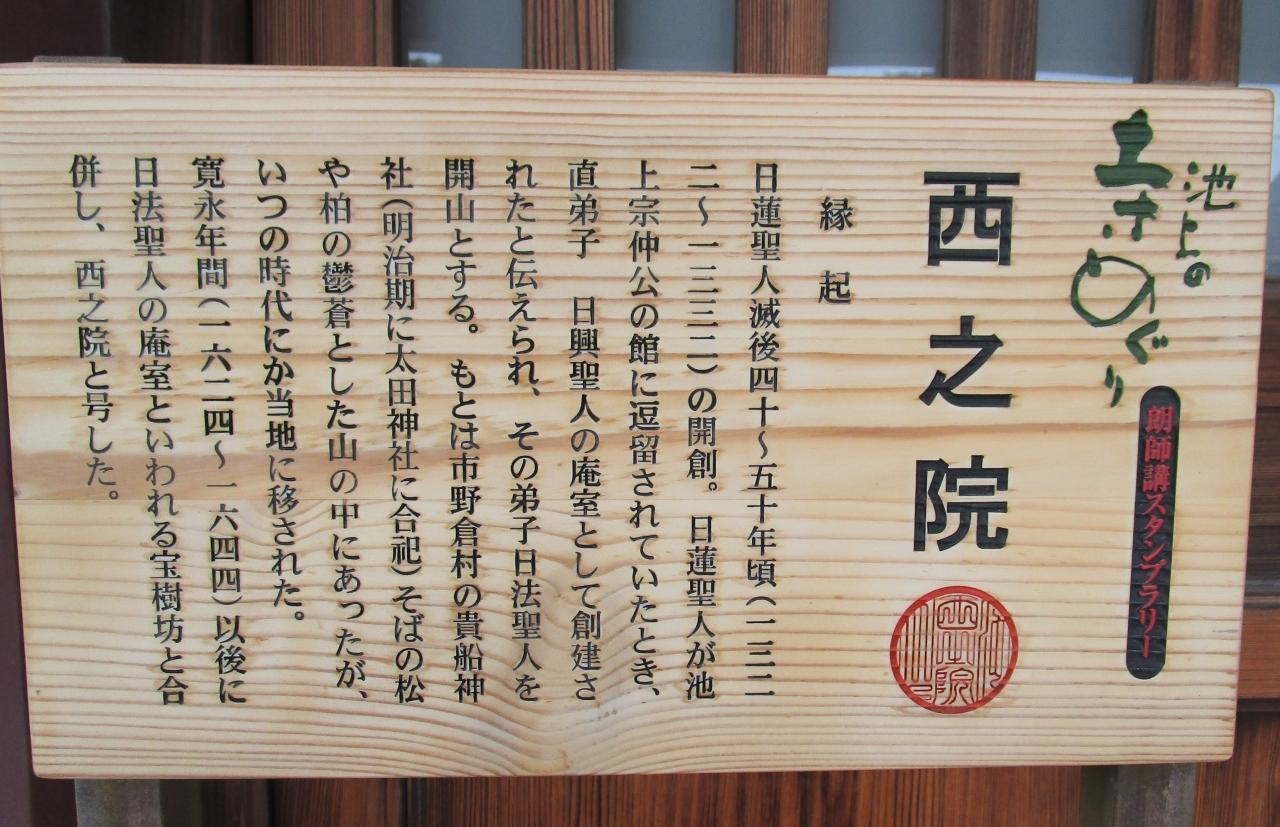 池上の
朗師講スタンプラリー
西之院
縁起
日蓮聖人滅後四十〜五十年頃(一三二
二〜一三三二)の開創。日蓮聖人が池
上宗仲公の館に逗留されていたとき、
直弟子　日興聖人の庵室として創建さ
れたと伝えられ、その弟子日法聖人を
開山とする。もとは市野倉村の貴船神
社(明治期に太田神社に合祀)そばの松
や柏の鬱蒼とした山の中にあったが、
いつの時代にか当地に移された。
寛永年間(一六二四〜一六四四)以後に
日法聖人の庵室といわれる宝樹坊と合
併し、西之院と号した。